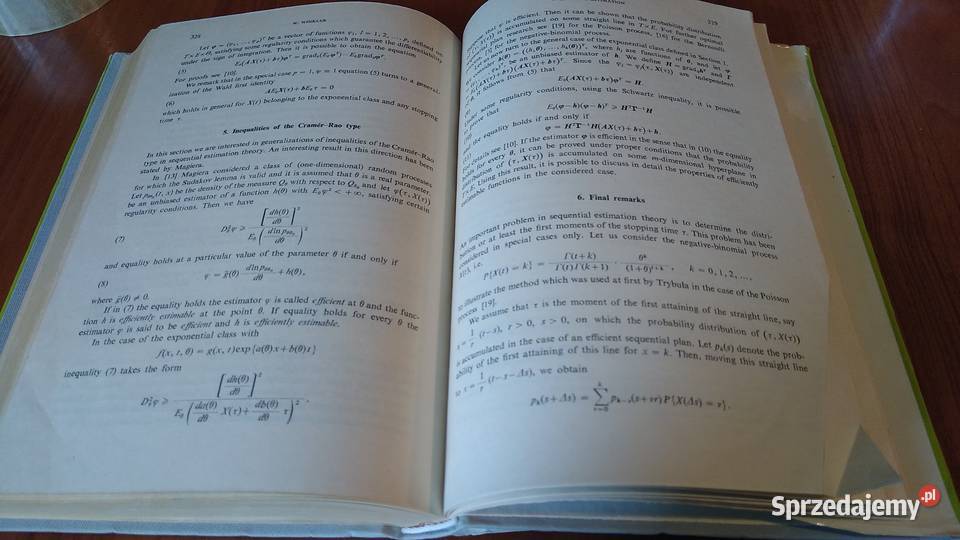 328
W. WINKLER
Let φ = (φ₁, ..., φₚ)ᵀ be a vector of functions φᵢ, i = 1, 2, ..., p, defined on
T×E×Θ, satisfying some regularity conditions which guarantee the differentiability
under the sign of integration. Then it is possible to obtain the equation
(5)
For proofs see [10].
We remark that in the special case p = 1, φ = 1 equation (5) turns to a general-
ization of the Wald first identity
(6) AE_θX(τ)+bE_θτ = 0
which holds in general for X(t) belonging to the exponential class and any stopping
time τ.
5. Inequalities of the Cramér–Rao type
In this section we are interested in generalizations of inequalities of the Cramér–Rao
type in sequential estimation theory. An interesting result in this direction has been
stated by Magiera.
In [13] Magiera considered a class of (one-dimensional) random processes
for which the Sudakov lemma is valid and it is assumed that θ is a real parameter.
Let p_θθ₀(t, x) be the density of the measure Q_θ with respect to Q_θ₀ and let φ(τ, X(τ))
be an unbiased estimator of a function h(θ) with E_θφ² < +∞, satisfying certain
regularity conditions. Then we have
(7) D²_θφ ⩾ [dh(θ)/dθ]² / E_θ(d ln p_θθ₀/dθ)²
and equality holds at a particular value of the parameter θ if and only if
(8) φ = g̃(θ) d ln p_θθ₀/dθ + h(θ),
where g̃(θ) ≠ 0.
If in (7) the equality holds the estimator φ is called efficient at θ and the func-
tion h is efficiently estimable at the point θ. If equality holds for every θ the
estimator φ is said to be efficient and h is efficiently estimable.
In the case of the exponential class with
f(x, t, θ) = g(x, t)exp{a(θ)x+b(θ)t}
inequality (7) takes the form
D²_θφ ⩾ [dh(θ)/dθ]² / E_θ(da(θ)/dθ X(τ)+ db(θ)/dθ τ)² .
329
φ is efficient. Then it can be shown that the probability distribution
is accumulated on some straight line in T×E. For further
plan research see [19] for the Poisson process, [16] for the Bernoulli
for the negative-binomial process.
us turn to the general case of the exponential class defined in Section 1.
where hᵢ are functions of θ, and let φ
be an unbiased estimator of h. We define H = grad_θhᵀ and T
(AX(τ)+bτ)(AX(τ)+bτ)ᵀ. Since the are independent
it follows from (5) that
E_θ(AX(τ)+bτ)φᵀ = H.
some regularity conditions, using the Schwartz inequality, it is possible
prove that
E_θ(φ−h)(φ−h)ᵀ ⩾ HᵀT⁻¹H
the equality holds if and only if
(11) φ = HᵀT⁻¹H(AX(τ)+bτ)+h.
details see [10]. If the estimator φ is efficient in the sense that in (10) the equality
holds for every θ, it can be proved under proper conditions that the probability
distribution of (τ, X(τ)) is accumulated on some m-dimensional hyperplane in
T×E. Using this result, it is possible to discuss in detail the properties of efficiently
estimable functions in the considered case.
6. Final remarks
An important problem in sequential estimation theory is to determine the distri-
bution or at least the first moments of the stopping time τ. This problem has been
considered in special cases only. Let us consider the negative-binomial process
X(t), i.e.
P{X(t) = k} = Γ(t+k)/Γ(t)Γ(k+1) · θᵏ/(1+θ)ᵗ⁺ᵏ , k = 0, 1, 2, ...,
to illustrate the method which was used at first by Trybula in the case of the Poisson
process [19].
We assume that τ is the moment of the first attaining of the straight line, say
x = 1/r (t−s), r > 0, s > 0, on which the probability distribution of (τ, X(τ))
is accumulated in the case of an efficient sequential plan. Let pₖ(s) denote the prob-
ability of the first attaining of this line for x = k. Then, moving this straight line
to x = 1/r (t−s−Δs), we obtain
pₖ(s+Δs) = Σᵏᵥ₌₀ pₖ₋ᵥ(s+vr)P{X(Δs) = v}.
Sprzedajemy.pl